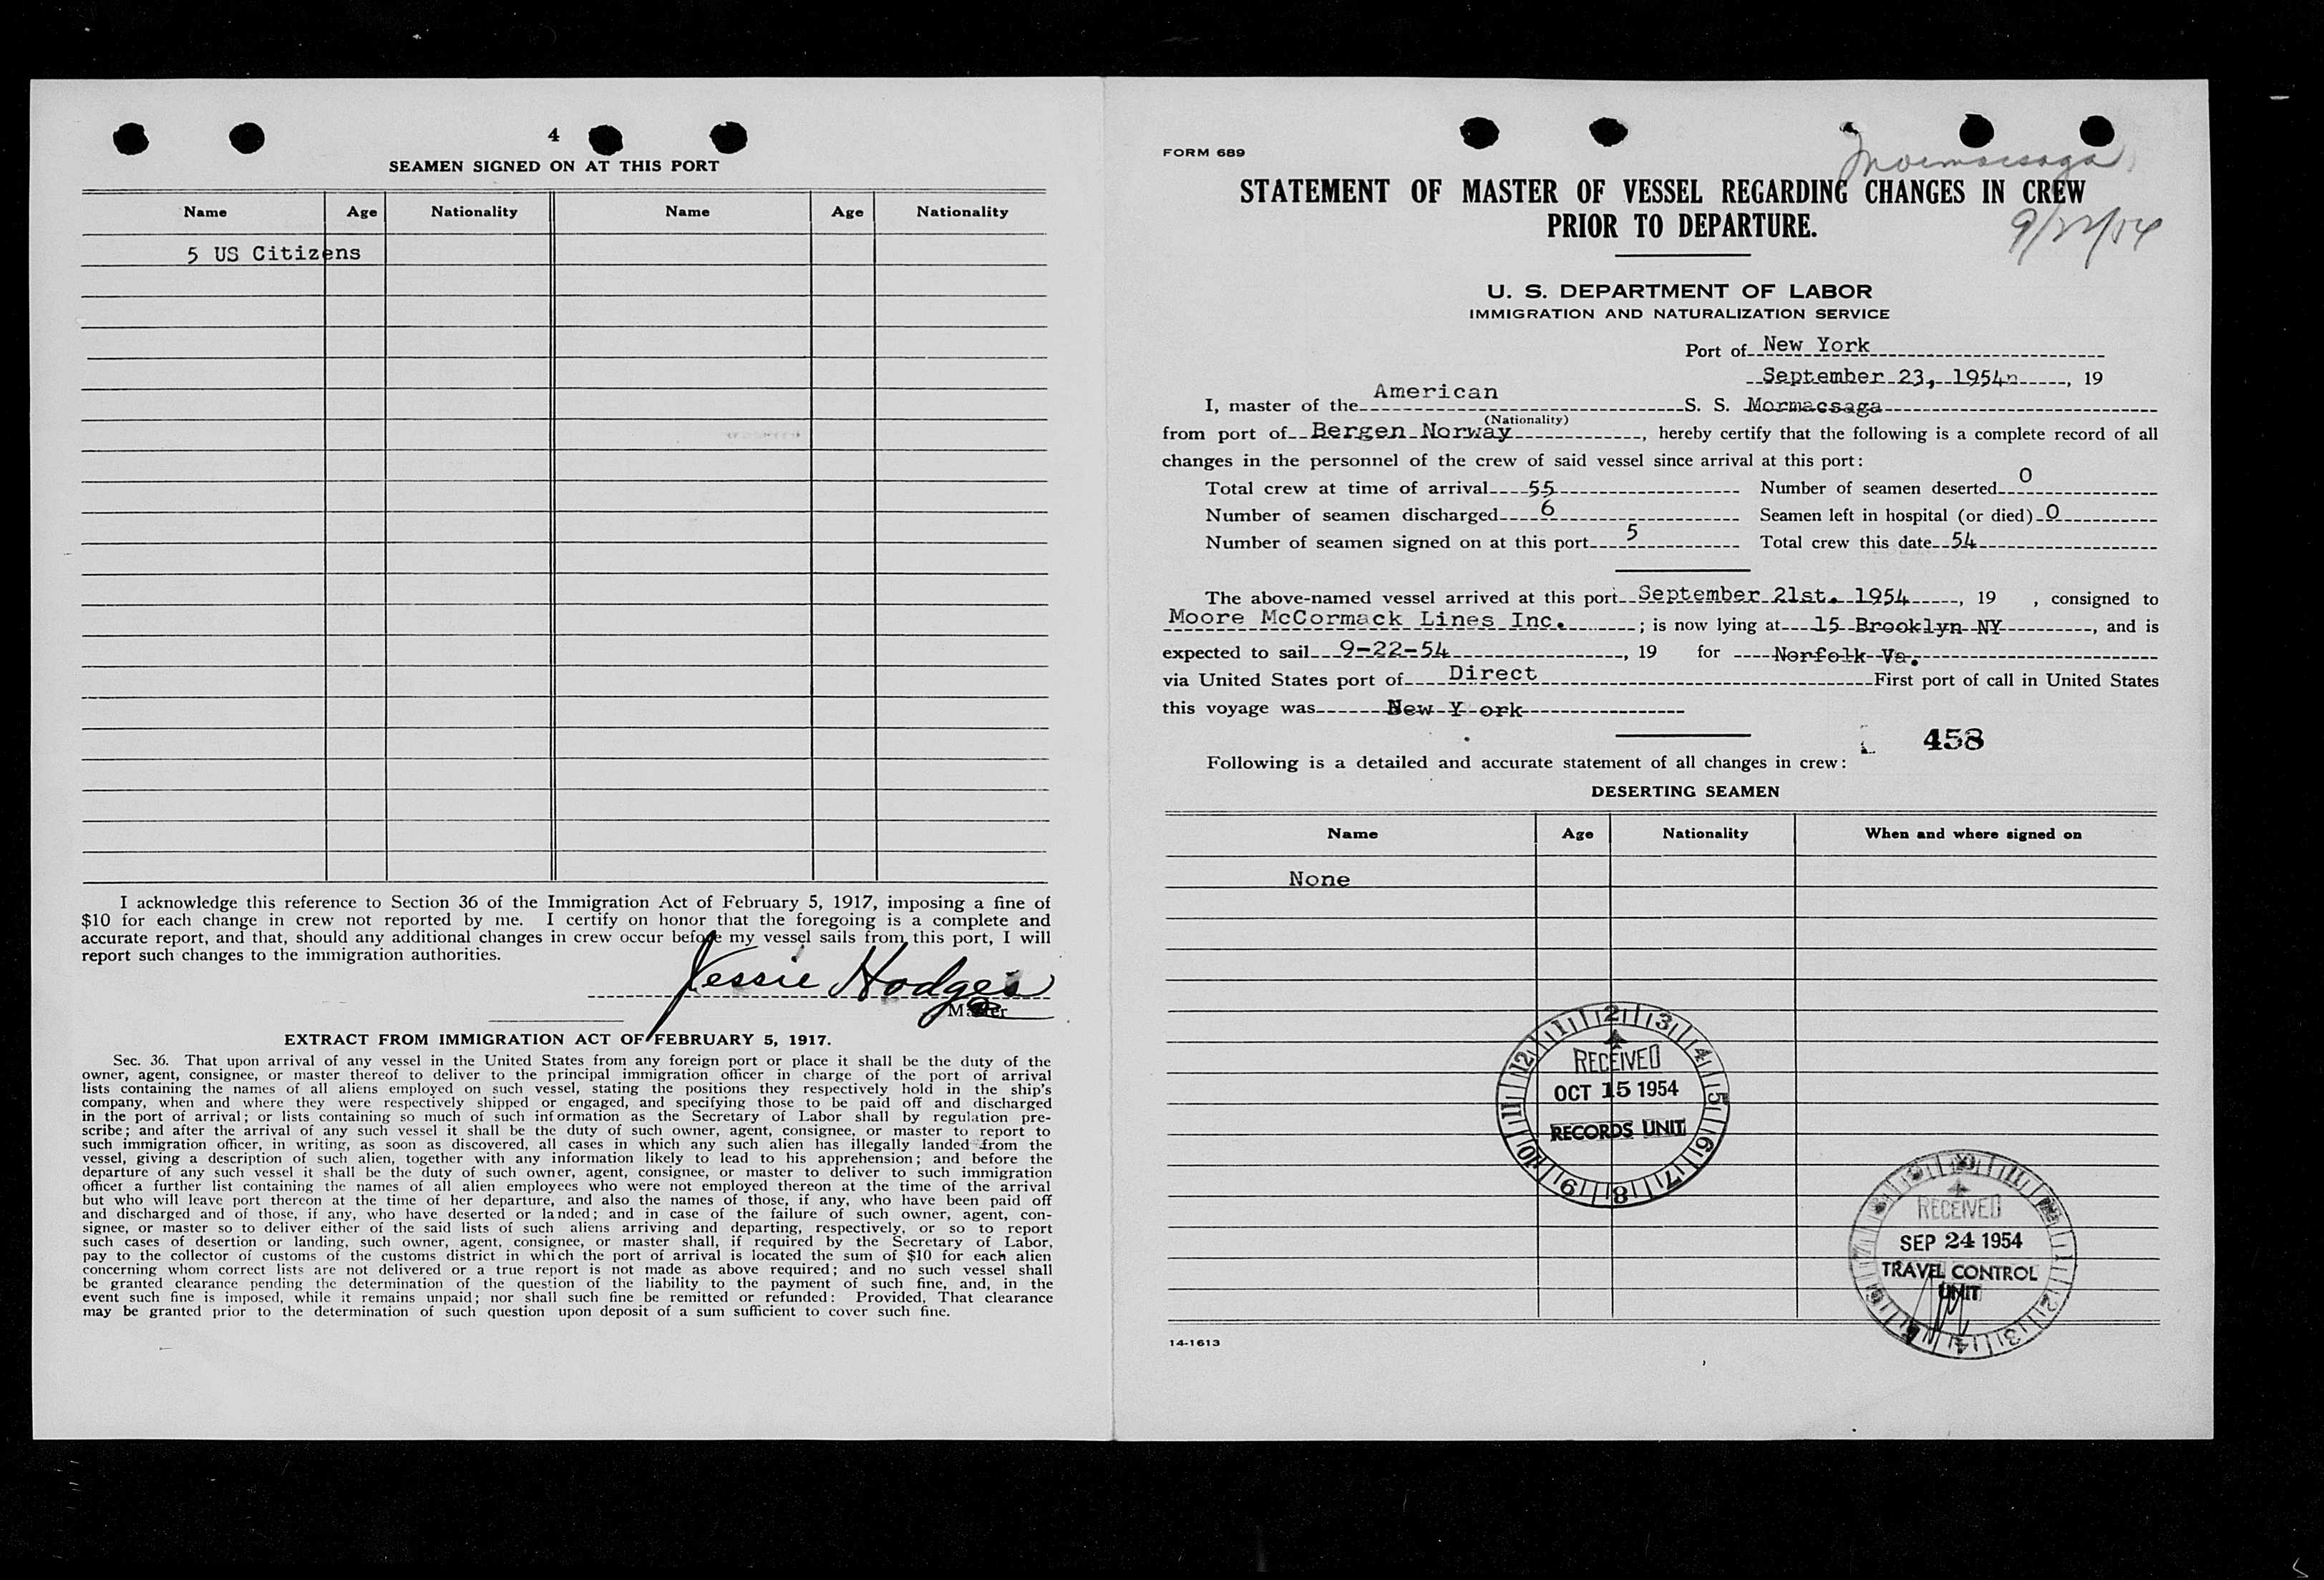 4
SEAMEN SIGNED ON AT THIS PORT
Name Age Nationality Name Age Nationality
5 US Citizens
I acknowledge this reference to Section 36 of the Immigration Act of February 5, 1917, imposing a fine of
$10 for each change in crew not reported by me. I certify on honor that the foregoing is a complete and
accurate report, and that, should any additional changes in crew occur before my vessel sails from this port, I will
report such changes to the immigration authorities.
Jessie Hodges
Master
EXTRACT FROM IMMIGRATION ACT OF FEBRUARY 5, 1917.
Sec. 36. That upon arrival of any vessel in the United States from any foreign port or place it shall be the duty of the
owner, agent, consignee, or master thereof to deliver to the principal immigration officer in charge of the port of arrival
lists containing the names of all aliens employed on such vessel, stating the positions they respectively hold in the ship's
company, when and where they were respectively shipped or engaged, and specifying those to be paid off and discharged
in the port of arrival; or lists containing so much of such information as the Secretary of Labor shall by regulation pre-
scribe; and after the arrival of any such vessel it shall be the duty of such owner, agent, consignee, or master to report to
such immigration officer, in writing, as soon as discovered, all cases in which any such alien has illegally landed from the
vessel, giving a description of such alien, together with any information likely to lead to his apprehension; and before the
departure of any such vessel it shall be the duty of such owner, agent, consignee, or master to deliver to such immigration
officer a further list containing the names of all alien employees who were not employed thereon at the time of the arrival
but who will leave port thereon at the time of her departure, and also the names of those, if any, who have been paid off
and discharged and of those, if any, who have deserted or landed; and in case of the failure of such owner, agent, con-
signee, or master so to deliver either of the said lists of such aliens arriving and departing, respectively, or so to report
such cases of desertion or landing, such owner, agent, consignee, or master shall, if required by the Secretary of Labor,
pay to the collector of customs of the customs district in which the port of arrival is located the sum of $10 for each alien
concerning whom correct lists are not delivered or a true report is not made as above required; and no such vessel shall
be granted clearance pending the determination of the question of the liability to the payment of such fine, and, in the
event such fine is imposed, while it remains unpaid; nor shall such fine be remitted or refunded: Provided, That clearance
may be granted prior to the determination of such question upon deposit of a sum sufficient to cover such fine.
FORM 689
Mormacsaga
STATEMENT OF MASTER OF VESSEL REGARDING CHANGES IN CREW
PRIOR TO DEPARTURE.
9/22/54
U. S. DEPARTMENT OF LABOR
IMMIGRATION AND NATURALIZATION SERVICE
Port of New York
September 23, 1954, 19
I, master of the American S. S. Mormacsaga
(Nationality)
from port of Bergen Norway, hereby certify that the following is a complete record of all
changes in the personnel of the crew of said vessel since arrival at this port:
Total crew at time of arrival 55 Number of seamen deserted 0
Number of seamen discharged 6 Seamen left in hospital (or died) 0
Number of seamen signed on at this port 5 Total crew this date 54
The above-named vessel arrived at this port September 21st. 1954, 19 , consigned to
Moore McCormack Lines Inc. ; is now lying at 15 Brooklyn NY, and is
expected to sail 9-22-54, 19 for Norfolk Va.
via United States port of Direct First port of call in United States
this voyage was New Y ork
458
Following is a detailed and accurate statement of all changes in crew:
DESERTING SEAMEN
Name Age Nationality When and where signed on
None
12 1 2 3 4 5 6 7 8 9 10 11
RECEIVED
OCT 15 1954
RECORDS UNIT
RECEIVED
SEP 24 1954
TRAVEL CONTROL
UNIT
14-1613